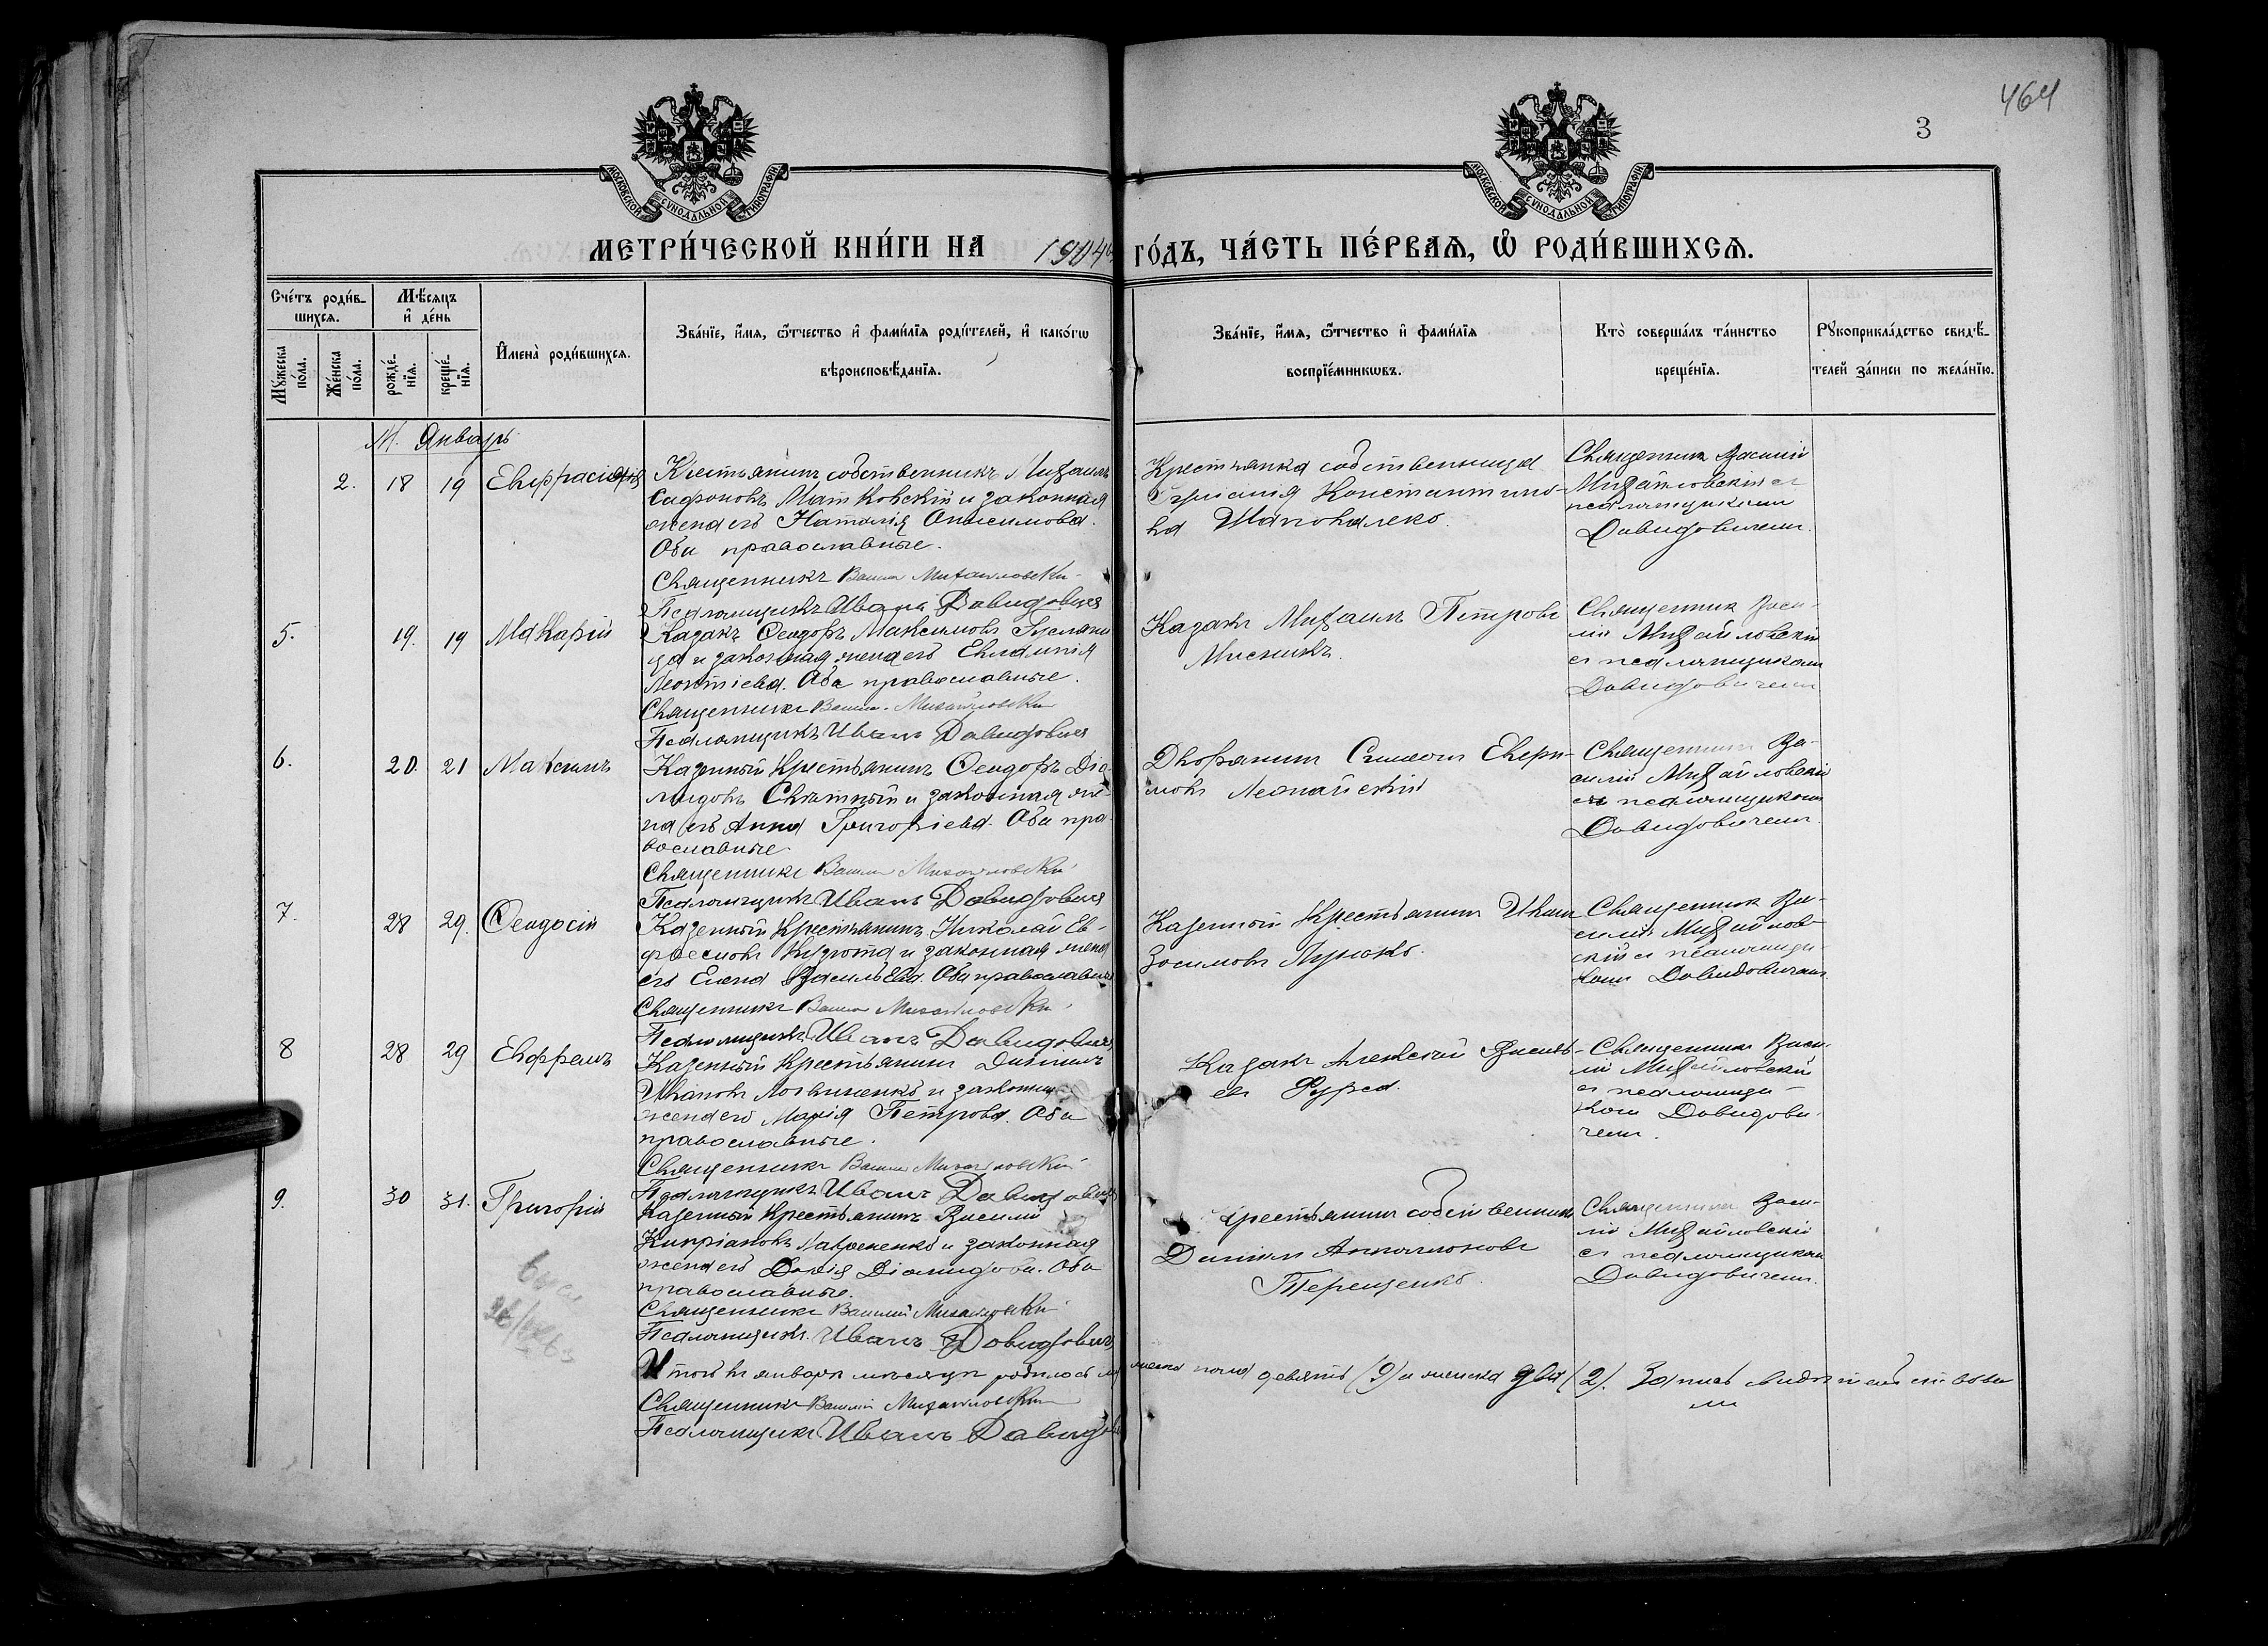 464
3
МОСКОВСКОЙ СѴНОДАЛЬНОЙ ТИПОГРАФІИ
МОСКОВСКОЙ СѴНОДАЛЬНОЙ ТИПОГРАФІИ
МЕТРИ́ЧЕСКОЙ КНИ́ГИ НА 1904 ГО́ДЪ, ЧА́СТЬ ПЕ́РВАѦ, Ѡ РОДИ́ВШИХСѦ.
Сче́тъ роди́в-
шихсѧ.
Мѣ́сѧцъ
и҆ де́нь
Мꙋ́жеска
по́ла.
Же́нска
по́ла.
рожде́-
нїѧ.
креще́-
нїѧ.
И҆мена̀ роди́вшихсѧ.
Зва́нїе, и҆́мѧ, ѻ҆́тчество и҆ фами́лїѧ роди́телей, и҆ како́гѡ
вѣроисповѣ́данїѧ.
Зва́нїе, и҆́мѧ, ѻ҆́тчество и҆ фами́лїѧ
воспрїе́мникѡвъ.
Кто̀ соверша́лъ та́инство
креще́нїѧ.
Рꙋкоприкла́дство свидѣ́-
телей за́писи по жела́нїю.
М. Январь
2. 18 19 Евфрасія
Крестьянинъ собственникъ Михаилъ
Сафроновъ Матковскій и законная
жена его Наталія Онисимова.
Оба православные.
Священникъ Василій Михайловскій
Псаломщикъ Иванъ Давидовичъ
Крестьянка собственница
Константино-
ва Шаповаленко.
Священникъ Василій
Михайловскій съ
псаломщикомъ
Давидовичемъ.
5. 19. 19 Макарій
Казакъ Ѳеодоръ Максимовъ
и законная жена его Евдокія
Леонтіева. Оба православные.
Священникъ Василій Михайловскій
Псаломщикъ Иванъ Давидовичъ
Казакъ Михаилъ Петровъ
Мисникъ.
Священникъ Васи-
лій Михайловскій
съ псаломщикомъ
Давидовичемъ
6. 20. 21 Максимъ
Казенный крестьянинъ Ѳеодоръ Діо-
мидовъ Святный и законная же-
на его Анна Григоріева. Оба пра-
вославные.
Священникъ Василій Михайловскій
Псаломщикъ Иванъ Давидовичъ
Дворянинъ Симеонъ
мовъ
Священникъ Ва-
силій Михайловскій
съ псаломщикомъ
Давидовичемъ.
7. 28 29. Ѳеодосій
Казенный крестьянинъ Николай Ев-
и законная жена
его Елена Васильева. Оба православные
Священникъ Василій Михайловскій
Псаломщикъ Иванъ Давидовичъ
Казенный крестьянинъ Иванъ
Зосимовъ
Священникъ Ва-
силій Михайлов-
скій съ псаломщи-
комъ Давидовичемъ.
8 28 29 Евфремъ
Казенный крестьянинъ
Ивановъ Логвиненко и законная
жена его Марія Петрова. Оба
православные.
Священникъ Василій Михайловскій
Псаломщикъ Иванъ Давидовичъ
Казакъ Алексѣй Василь-
евъ Фурса.
Священникъ Васи-
лій Михайловскій
съ псаломщи-
комъ Давидови-
чемъ.
9. 30 31. Григорій
Казенный крестьянинъ Василій
Кипріановъ Лавриненко и законная
жена его Діомидова. Оба
православные.
Священникъ Василій Михайловскій
Псаломщикъ Иванъ Давидовичъ
Крестьянинъ собственникъ
Терещенко.
Священникъ Васи-
лій Михайловскій
съ псаломщикомъ
Давидовичемъ.
Итого въ январѣ мѣсяцѣ родилось мужеска пола девять (9) и женска два (2). Запись свидѣтельствова-
ли
Священникъ Василій Михайловскій
Псаломщикъ Иванъ Давидовичъ